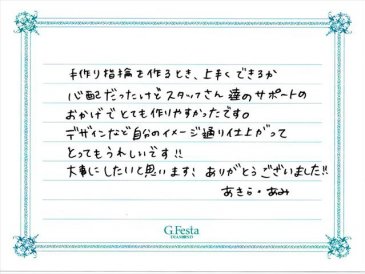 手作り指輪を作るとき、上手くできるか
心配だったけどスタッフさん達のサポートの
おかげでとても作りやすかったです。
デザインなど自分のイメージ通り仕上がって
とってもうれしいです!!
大事にしたいと思います! ありがとうございました!!
あきら・あみ
G.Festa
DIAMOND